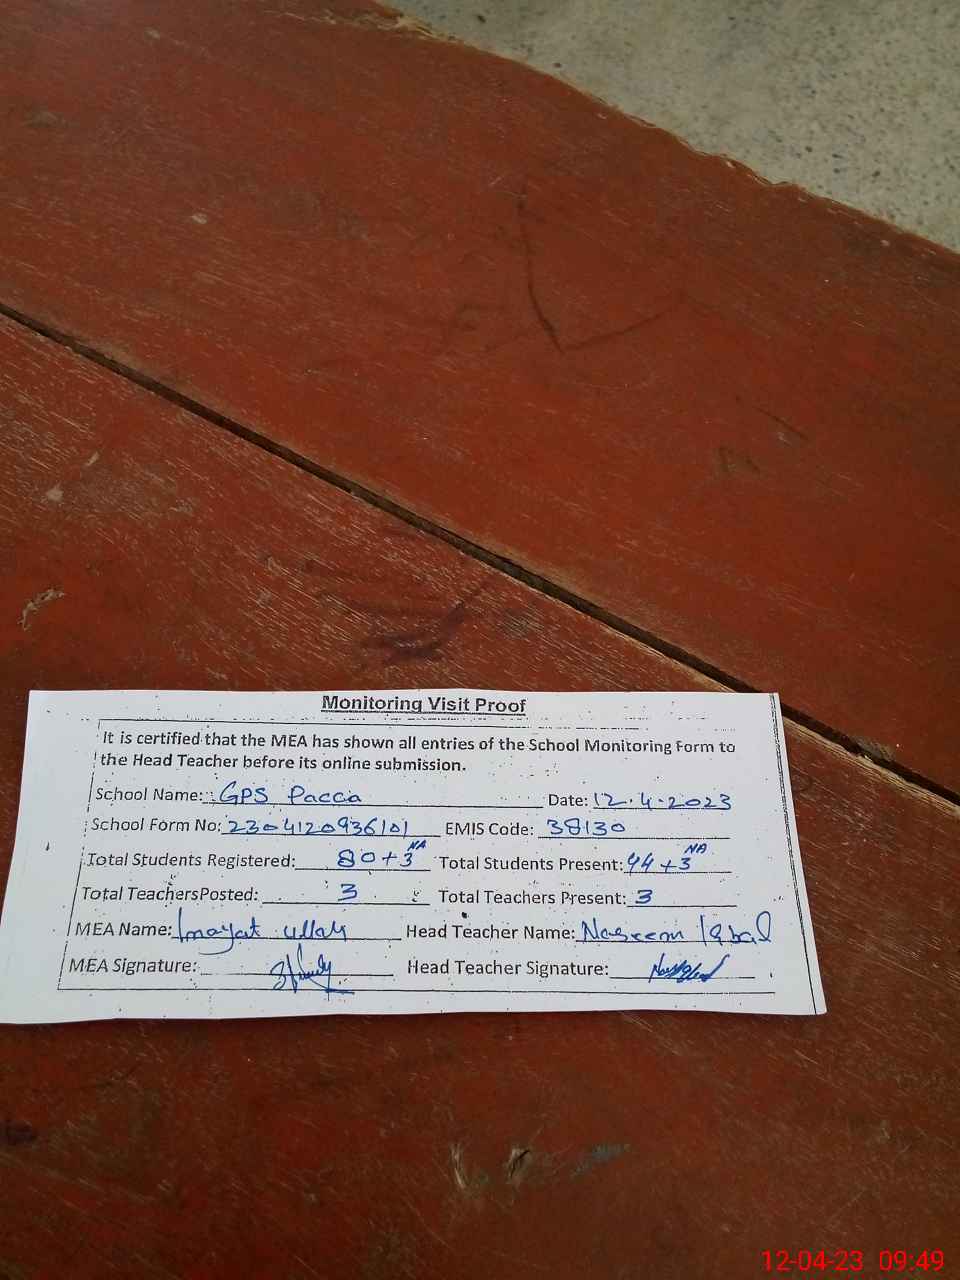 Monitoring Visit Proof
It is certified that the MEA has shown all entries of the School Monitoring Form to
the Head Teacher before its online submission.
School Name: GPS Pacca Date: 12.4.2023
School Form No: 2304120936101 EMIS Code: 38130
Total Students Registered: 80+3 NA Total Students Present: 44+3 NA
Total TeachersPosted: 3 Total Teachers Present: 3
MEA Name: Inayat ullah Head Teacher Name: Naseem Iqbal
MEA Signature: Head Teacher Signature:
12-04-23 09:49